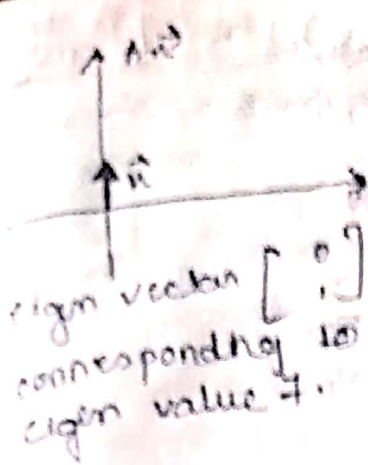 Ax⃗
x⃗
eign vector [ 0
1 ]
corresponding to
eigen value 7.